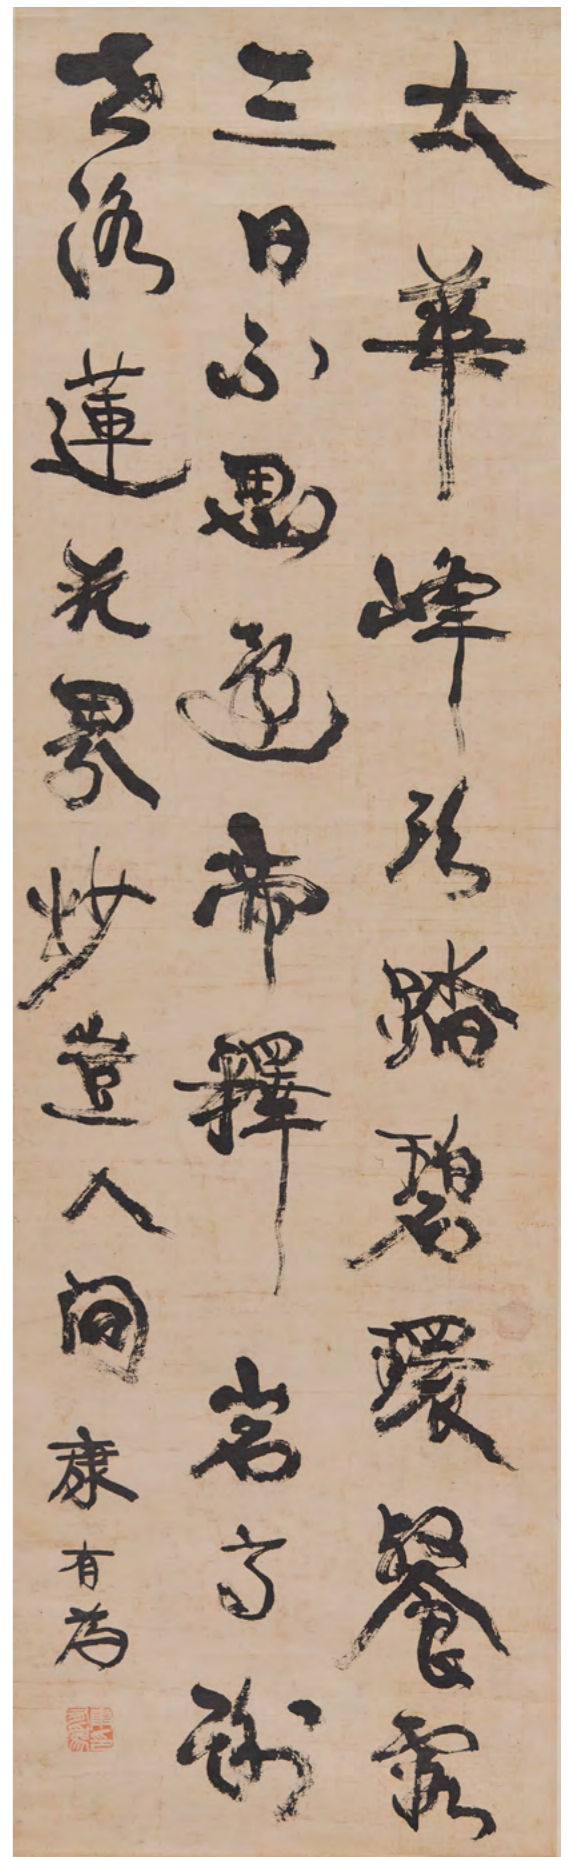 太華峰踏碧環餐霞
三日不思還帝釋岩高
蓮花界妙豈人間
康有為